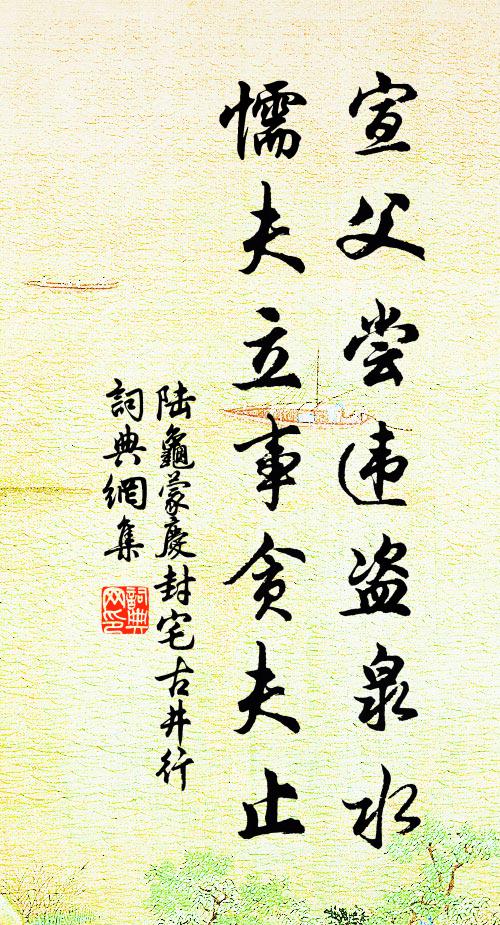 宣父尝违盗泉水
懦夫立事贪夫止
陆龜蒙慶封宅古井行
詞典網集
詞典網印